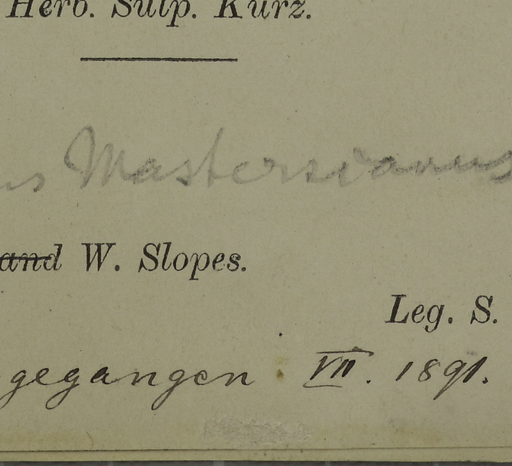 Herb. Sulp. Kurz.
us Mastersianus
and W. Slopes.
Leg. S.
gegangen VII. 1891.